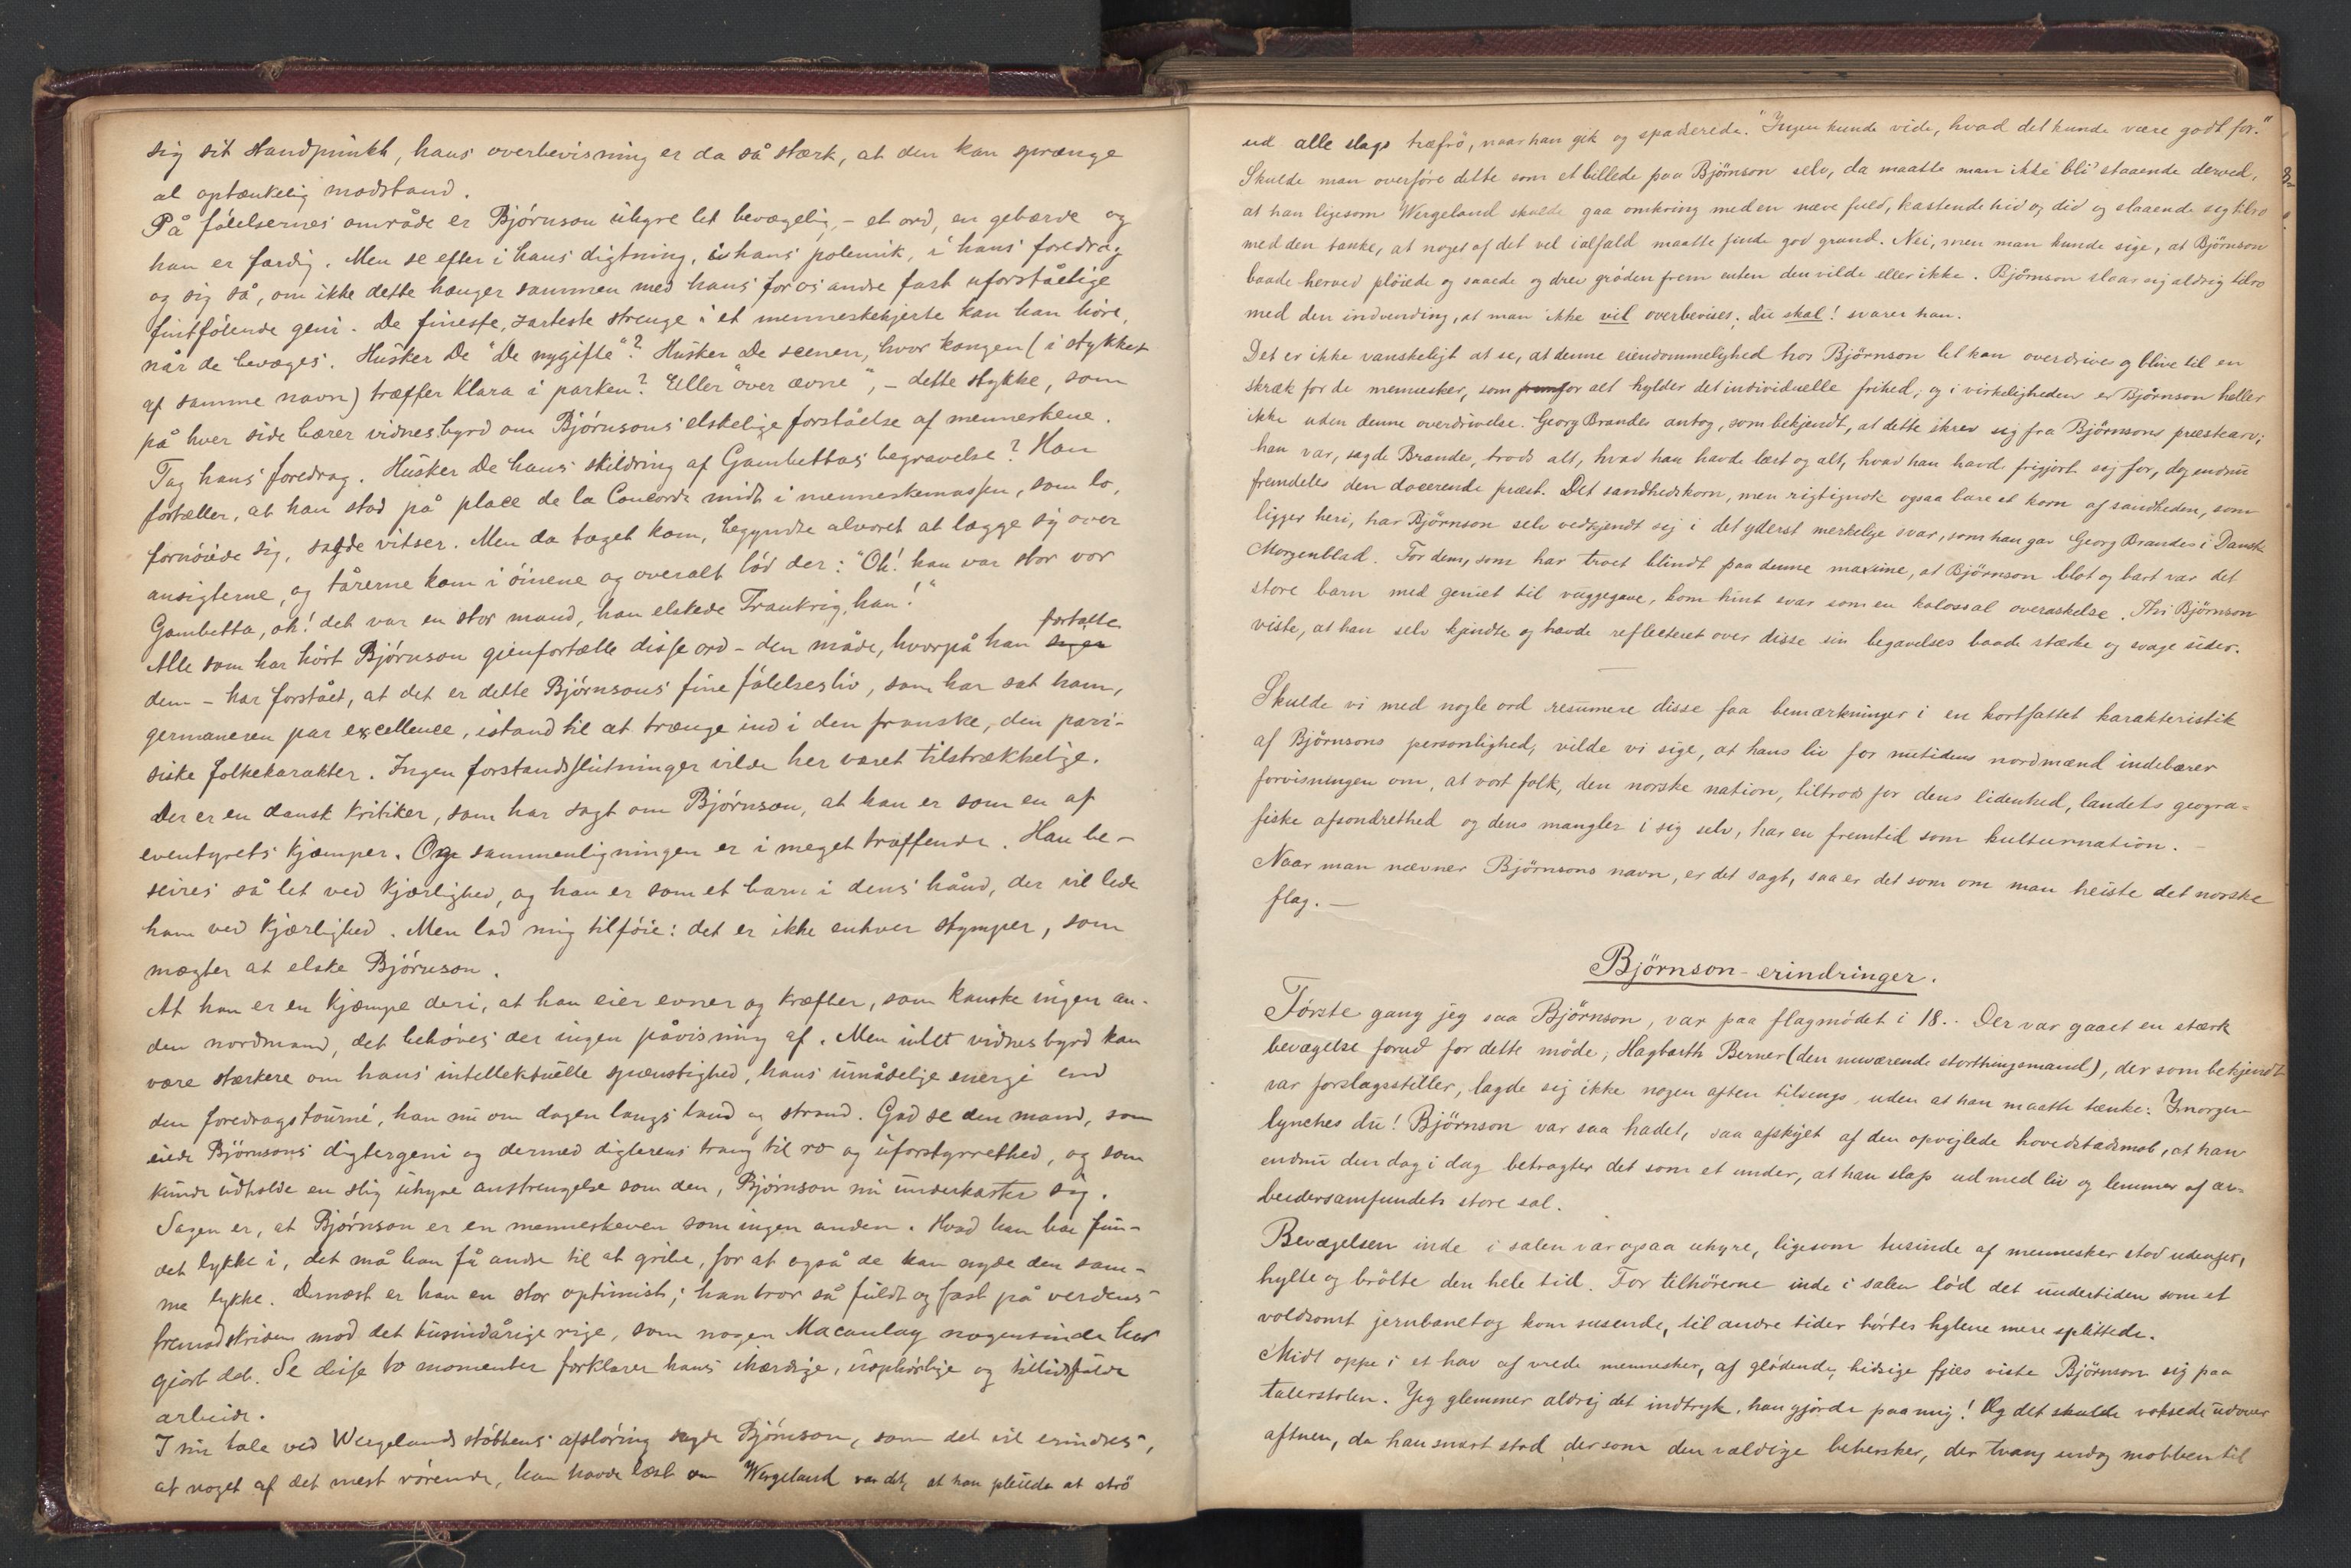 sig sit standpunkt, hans overbevisning er da så stærk, at den kan sprænge
al optænkelig modstand.
På følelsernes område er Bjørnson uhyre let bevægelig, – et ord, en gebærde og
han er færdig. Men se efter i hans digtning, i hans polemik, i hans foredrag
og sig så, om ikke dette hænger sammen med hans for os andre fast uforståelige
fintfølende geni. De fineste, zarteste strenge i et menneskehjerte kan han høre,
når de bevæges. Husker De "De nygifte"? Husker De scenen, hvor kongen (i stykket
af samme navn) træffer Klara i parken? Eller "over ævne", – dette stykke, som
på hver side bærer vidnesbyrd om Bjørnsons elskelige forståelse af menneskene.
Tag hans foredrag. Husker De hans skildring af Gambettas begravelse? Han
fortæller, at han stod på place de la Concorde midt i menneskemassen, som lo,
fornøiede sig, sagde vitser. Men da toget kom, begyndte alvoret at lægge sig over
ansigterne, og tårerne kom i øinene og overalt lød der: "Oh! han var stor vor
Gambetta, oh! det var en stor mand, han elskede Frankrig, han!"
Alle som har hørt Bjørnson gjenfortælle disse ord – den måde, hvorpå han siger fortalte
dem – har forstået, at det er dette Bjørnsons fine følelsesliv, som har sat ham,
germaneren par excellence, istand til at trænge ind i den franske, den pari-
siske folkekarakter. Ingen forstandsslutninger vilde her været tilstrækkelige.
Der er en dansk kritiker, som har sagt om Bjørnson, at han er som en af
eventyrets kjæmper. Og sammenligningen er i meget træffende. Han be-
seires så let ved kjærlighed, og han er som et barn i dens hånd, der vil lede
ham ved kjærlighed. Men lad mig tilføie: det er ikke enhver stymper, som
mægter at elske Bjørnson.
At han er en kjæmpe deri, at han eier evner og kræfter, som kanske ingen an-
den nordmand, det behøves der ingen påvisning af. Men intet vidnesbyrd kan
være stærkere om hans intellektuelle spænstighed, hans umådelige energi end
den foredragstourné, han nu om dagen langs land og strand. Gad se den mand, som
eiede Björnsons digtergeni og dermed digterens trang til ro og uforstyrrethed, og som
kunde udholde en slig uhyre anstrengelse som den, Bjørnson nu underkaster sig.
Sagen er, at Bjørnson er en menneskeven som ingen anden. Hvad han har fun-
det lykke i, det må han få andre til at gribe, for at også de kan nyde den sam-
me lykke. Dernæst er han en stor optimist; han tror så fuldt og fast på verdens
fremadskriden mod det tusindårige rige, som nogen Macaulay nogensinde har
gjort det. Se disse to momenter forklarer hans ihærdige, uophørlige og tillidsfulde
arbeide.
I sin tale ved Wergelandsstøttens afsløring sagde Bjørnson, som det vil erindres,
at noget af det mest rørende, han havde læst om Wergeland var det, at han pleiede at strö
ud alle slags træfrö, naar han gik og spadserede. "Ingen kunde vide, hvad det kunde være godt for."
Skulde man overføre dette som et billede paa Björnson selv, da maatte man ikke bli' staaende derved,
at han ligesom Wergeland skulde gaa omkring med en næve fuld, kastende hid og did og slaaende sig tilro
med den tanke, at noget af det vel ialfald maatte finde god grund. Nei, men man kunde sige, at Björnson
baade herved plöiede og saaede og drev gröden frem enten den vilde eller ikke. Björnson slaar sig aldrig tilro
med den indvending, at man ikke vil overbevises; du skal! svarer han.
Det er ikke vanskeligt at se, at denne eiendommelighed hos Björnson let kan overdrives og blive til en
skræk for de mennesker, som fremfor alt hylder det individuelle frihed; og i virkeligheden er Björnson heller
ikke uden denne overdrivelse. Georg Brandes antog, som bekjendt, at dette skrev sig fra Björnsons præstearv;
han var, sagde Brandes, trods alt, hvad han havde læst og alt, hvad han havde frigjort sig for, dog endnu
fremdeles den docerende præst. Det sandhedskorn, men rigtignok ogsaa bare et korn af sandheden, som
ligger heri, har Björnson selv vedkjendt sig i det yderst merkelige svar, som han gav Georg Brandes i Dansk
Morgenblad. For dem, som har troet blindt paa denne maxime, at Björnson blot og bart var det
store barn med geniet til vuggegave, kom hint svar som en kolossal overaskelse. Thi Björnson
viste, at han selv kjendte og havde reflecteret over disse sin begavelses baade stærke og svage sider.
Skulde vi med nogle ord resumere disse faa bemærkninger i en kortfattet karakteristik
af Björnsons personlighed, vilde vi sige, at hans liv for nutidens nordmænd indebærer
forvisningen om, at vort folk, den norske nation, tiltrods for dens lidenhed, landets geogra-
fiske afsondrethed og dens mangler i sig selv, har en fremtid som kulturnation. –
Naar man nævner Björnsons navn, er det sagt, saa er det som om man heiste det norske
flag. —
Björnson-erindringer.
Förste gang jeg saa Björnson, var paa flagmödet i 18.. Der var gaaet en stærk
bevægelse forud for dette möde; Hagbarth Berner (den nuværende storthingsmand), der som bekjendt
var forslagsstiller, lagde sig ikke nogen aften tilsengs, uden at han maatte tænke: Imorgen
lynches du! Björnson var saa hadet, saa afskyet af den opviglede hovedstadsmob, at han
endnu den dag i dag betragter det som et under, at han slap ud med liv og lemmer af ar-
beidersamfundets store sal.
Bevægelsen inde i salen var ogsaa uhyre, ligesom tusinde af mennesker stod udenfor,
hylte og brölte den hele tid. For tilhörerne inde i salen löd det undertiden som et
voldsomt jernbanetog kom susende, til andre tider hörtes hylene mere splittede.
Midt oppe i et hav af vrede mennesker, af glödende, hidsige fjæs viste Björnson sig paa
talerstolen. Jeg glemmer aldrig det indtryk, han gjorde paa mig! Og det skulde voksede udover
aftnen, da han snart stod der som den vældige behersker, der tvang endog mobben til